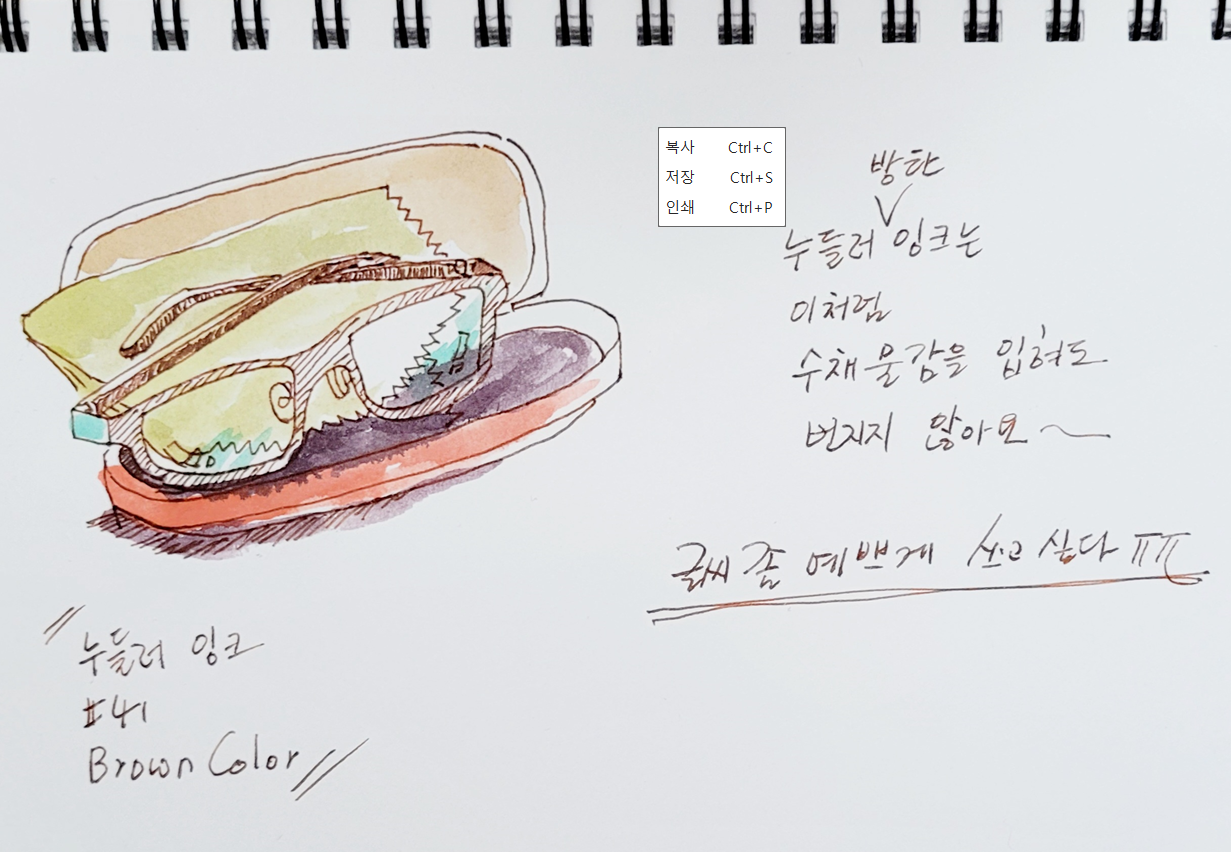 복사 Ctrl+C
저장 Ctrl+S
인쇄 Ctrl+P
방탄
누들러 잉크는
이처럼
수채물감을 입혀도
번지지 않아요~
글씨 좀 예쁘게 쓰고 싶다 ㅠㅠ
"누들러 잉크
#41
Brown Color"